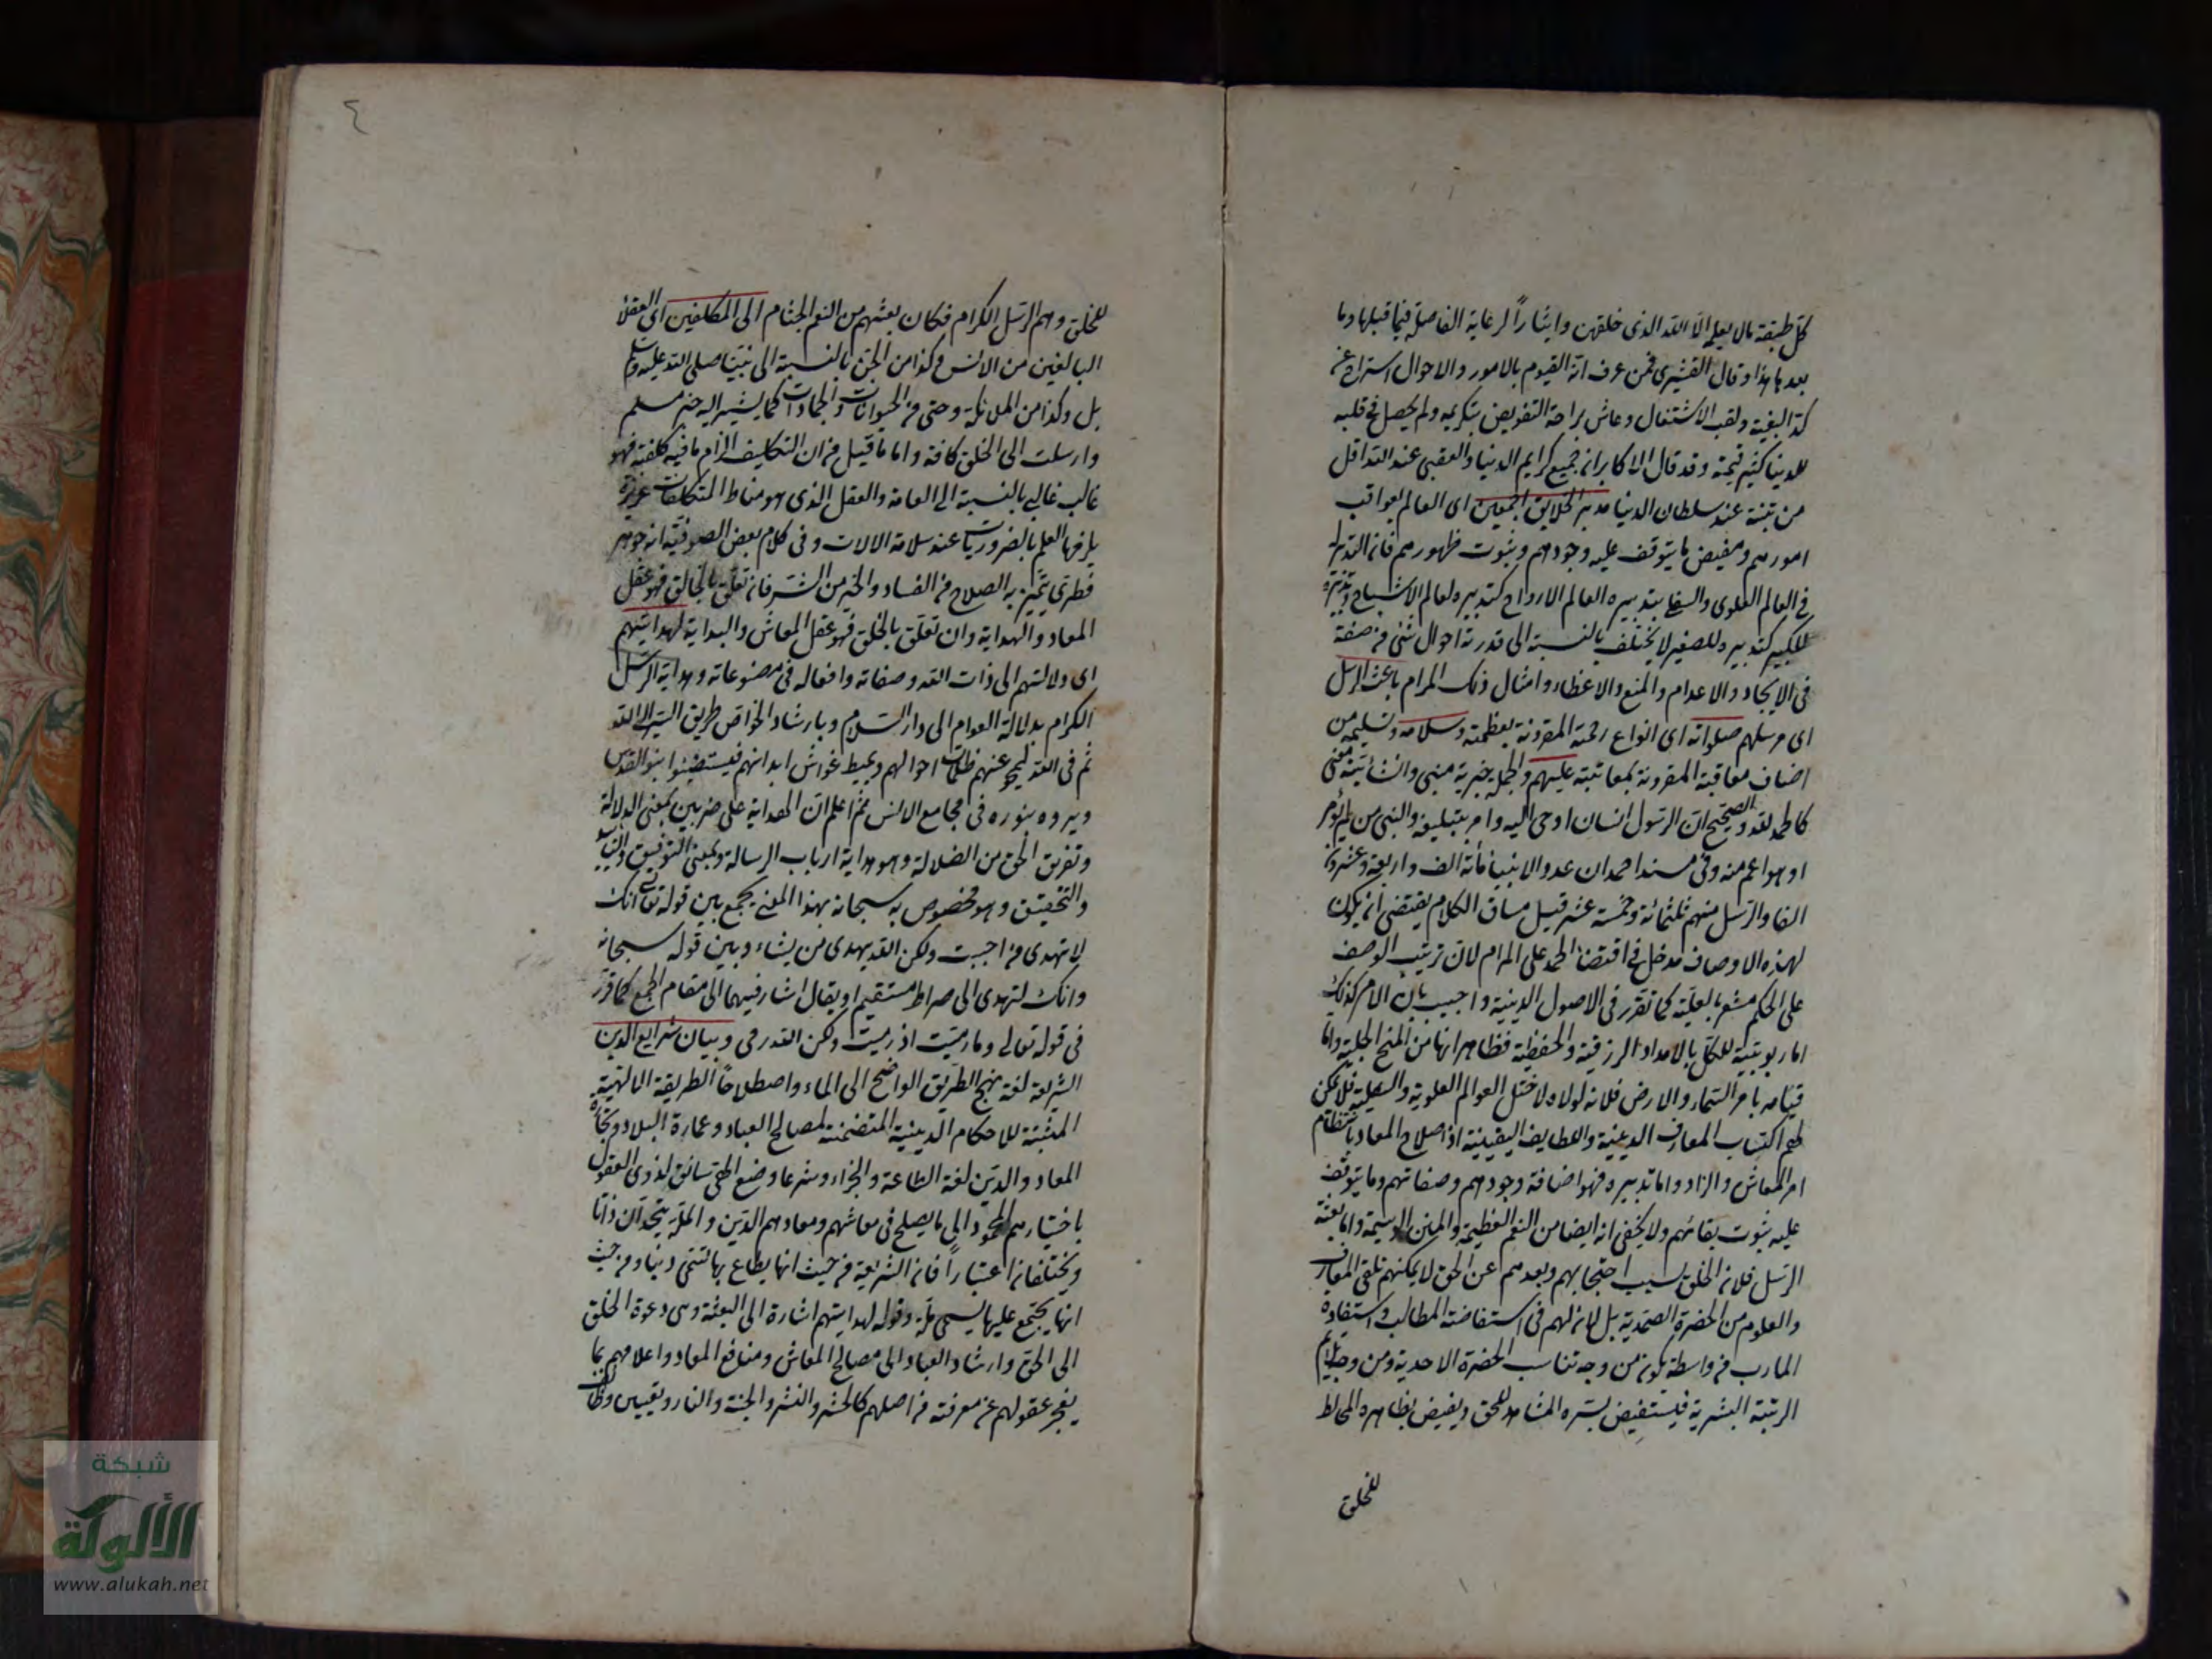 كل طبقة مالا يعلمه الا الله الذى خلقهن وايثاراً لرعاية الفاصلة فيما قبلها وما
بعدها هذا وقال القشيرى فمن عرف انه القيوم بالامور والاحوال استراح عن
كد البغية وتعب الاشتغال وعاش براحة التفويض بتكريمه ولم يحصل فى قلبه
للدنيا كثير قيمة وقد قال الاكابر ان جميع كرايم الدنيا والعقبى عند الله اقل
من تبنة عند سلطان الدنيا مدبر الخلايق اجمعين اى العالم بعواقب
امورهم ومفيض ما يتوقف عليه وجودهم وثبوت ظهورهم فانه التدبير
فى العالم العلوى والسفلى بتدبيره العالم الارواح كتدبيره لعالم الاشباح وتدبيره
للكبير كتدبيره للصغير لا يختلف بالنسبة الى قدرته احوال شئ من صنعة
فى الايجاد والاعدام والمنع والاعطاء وامثال ذلك المرام باعث الرسل
اى مرسلهم صلواته اى انواع رحمته المقرونة بعظمته وسلامه وتسليمه من
اصناف معاقبة المقرونة بمعاتبة عليهم والجملة خبرية مبنى وانشائية معنى
كالحمد لله والصحيح ان الرسول انسان اوحى اليه وامر بتبليغه والنبى من لم يؤمر
او هو اعم منه وفى مسند احمد ان عدد الانبيا مأة الف واربعة وعشرون
الفا والرسل منهم ثلثمائة وخمسة عشر قيل مساق الكلام يقتضى ان يكون
لهذه الاوصاف مدخل فى اقتضا الحمد على المرام لان ترتيب الوصف
على الحكم مشعر بالعلية كما تقرر فى الاصول الدينية واجيب بان الامر كذلك
اما ربوبيته للكل بالامداد الرزقية والحفظية فظاهر انها من المنح الجلية واما
قيامه بامر السماء والارض فلانه لولاه لاختل العوالم العلوية والسفلية فلا يمكن
لهم اكتساب المعارف الدينية واللطايف اليقينية اذ اصلاح المعاد بانتظام
امر المعاش والزاد واما تدبيره فهو اضافة وجودهم وصفاتهم وما يتوقف
عليه ثبوت بقائهم ولا يخفى انه ايضا من النعم العظيمة والمنن الوسيمة واما بعثة
الرسل فلان الخلق لسبب احتجابهم وبعدهم عن الحق لا يمكنهم تلقى المعارف
والعلوم من الحضرة الصمدية بل لابد لهم فى استفاضة المطالب واستفادة
المارب من واسطة يكون من وجه تناسب الحضرة الاحدية ومن وجه يلايم
الرتبة البشرية فيستفيض بسره المشاهد للحق ويفيض بظاهره المخالط
للخلق
٤
للخلق وهم الرسل الكرام فكان بعثهم من النعم الجسام الى المكلفين اى العقلا
البالغين من الانس وكذا من الجن بالنسبة الى نبينا صلى الله عليه وسلم
بل وكذا من الملائكة وحتى من الحيوانات والجمادات كما يشير اليه خبر مسلم
وارسلت الى الخلق كافة واما ما قيل من ان التكليف الزام ما فيه كلفة فهو
غالب غالبى بالنسبة الى العامة والعقل الذى هو مناط المتكلفات غريزة
يلزمها العلم بالضروريات عند سلامة الالات وفى كلام بعض الصوفية انه جوهر
فطرى يتميز به الصلاح من الفساد والخير من الشر فان تعلق بالخالق فهو عقل
المعاد والهداية وان تعلق بالخلق فهو عقل المعاش والبداية لهدايتهم
اى ولالتهم الى ذات الله وصفاته وافعاله فى مصنوعاته وهداية الرسل
الكرام بدلالة العوام الى دار السلام وبارشاد الخواص طريق السير الى الله
ثم فى الله ليمحو عنهم ظلمات احوالهم ويميط غواش ابدانهم فيستضيئوا بنور القدس
ويروه بنوره فى مجامع الانس ثم اعلم ان الهداية على ضربين بمعنى الدلالة
وتفريق الحق من الضلالة وهو هداية ارباب الرسالة وبمعنى التوفيق والتاييد
والتحقيق وهو مخصوص به سبحانه بهذا المعنى يجمع بين قوله تعالى انك
لا تهدى من احببت ولكن الله يهدى من يشاء وبين قوله سبحانه
وانك لتهدى الى صراط مستقيم او يقال اشار فيهما الى مقام الجمع كما قرر
فى قوله تعالى وما رميت اذ رميت ولكن الله رمى وبيان شرايع الدين
الشريعة لغة نهج الطريق الواضح الى الماء واصطلاحاً الطريقة الالهية
المثبتة للاحكام الدينية المتضمنة لمصالح العباد وعمارة البلاد ونجاة
المعاد والدين لغة الطاعة والجزاء وشرعا وضع الهى سائق لذوى العقول
باختيارهم المحمود الى ما يصلح فى معاشهم ومعادهم الدين والملة يتحدان ذاتا
ويختلفان اعتباراً فان الشريعة من حيث انها يطاع بها تسمى دينا ومن حيث
انها يجتمع عليها يسمى ملة وقوله لهدايتهم اشارة الى البعثة وهى دعوة الخلق
الى الحق وارشاد العباد الى مصالح المعاش ومنافع المعاد واعلامهم بما
يعجز عقولهم عن معرفته من اصلهم كالحشر والنشر والجنة والنار وتعيين وظائف
شبكة
الألوكة
www.alukah.net